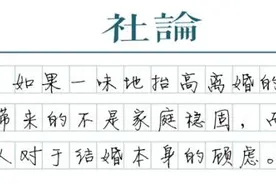 社論
如果一味地抬高离婚的
带来的不是家庭稳固，
人对于结婚本身的顾虑。